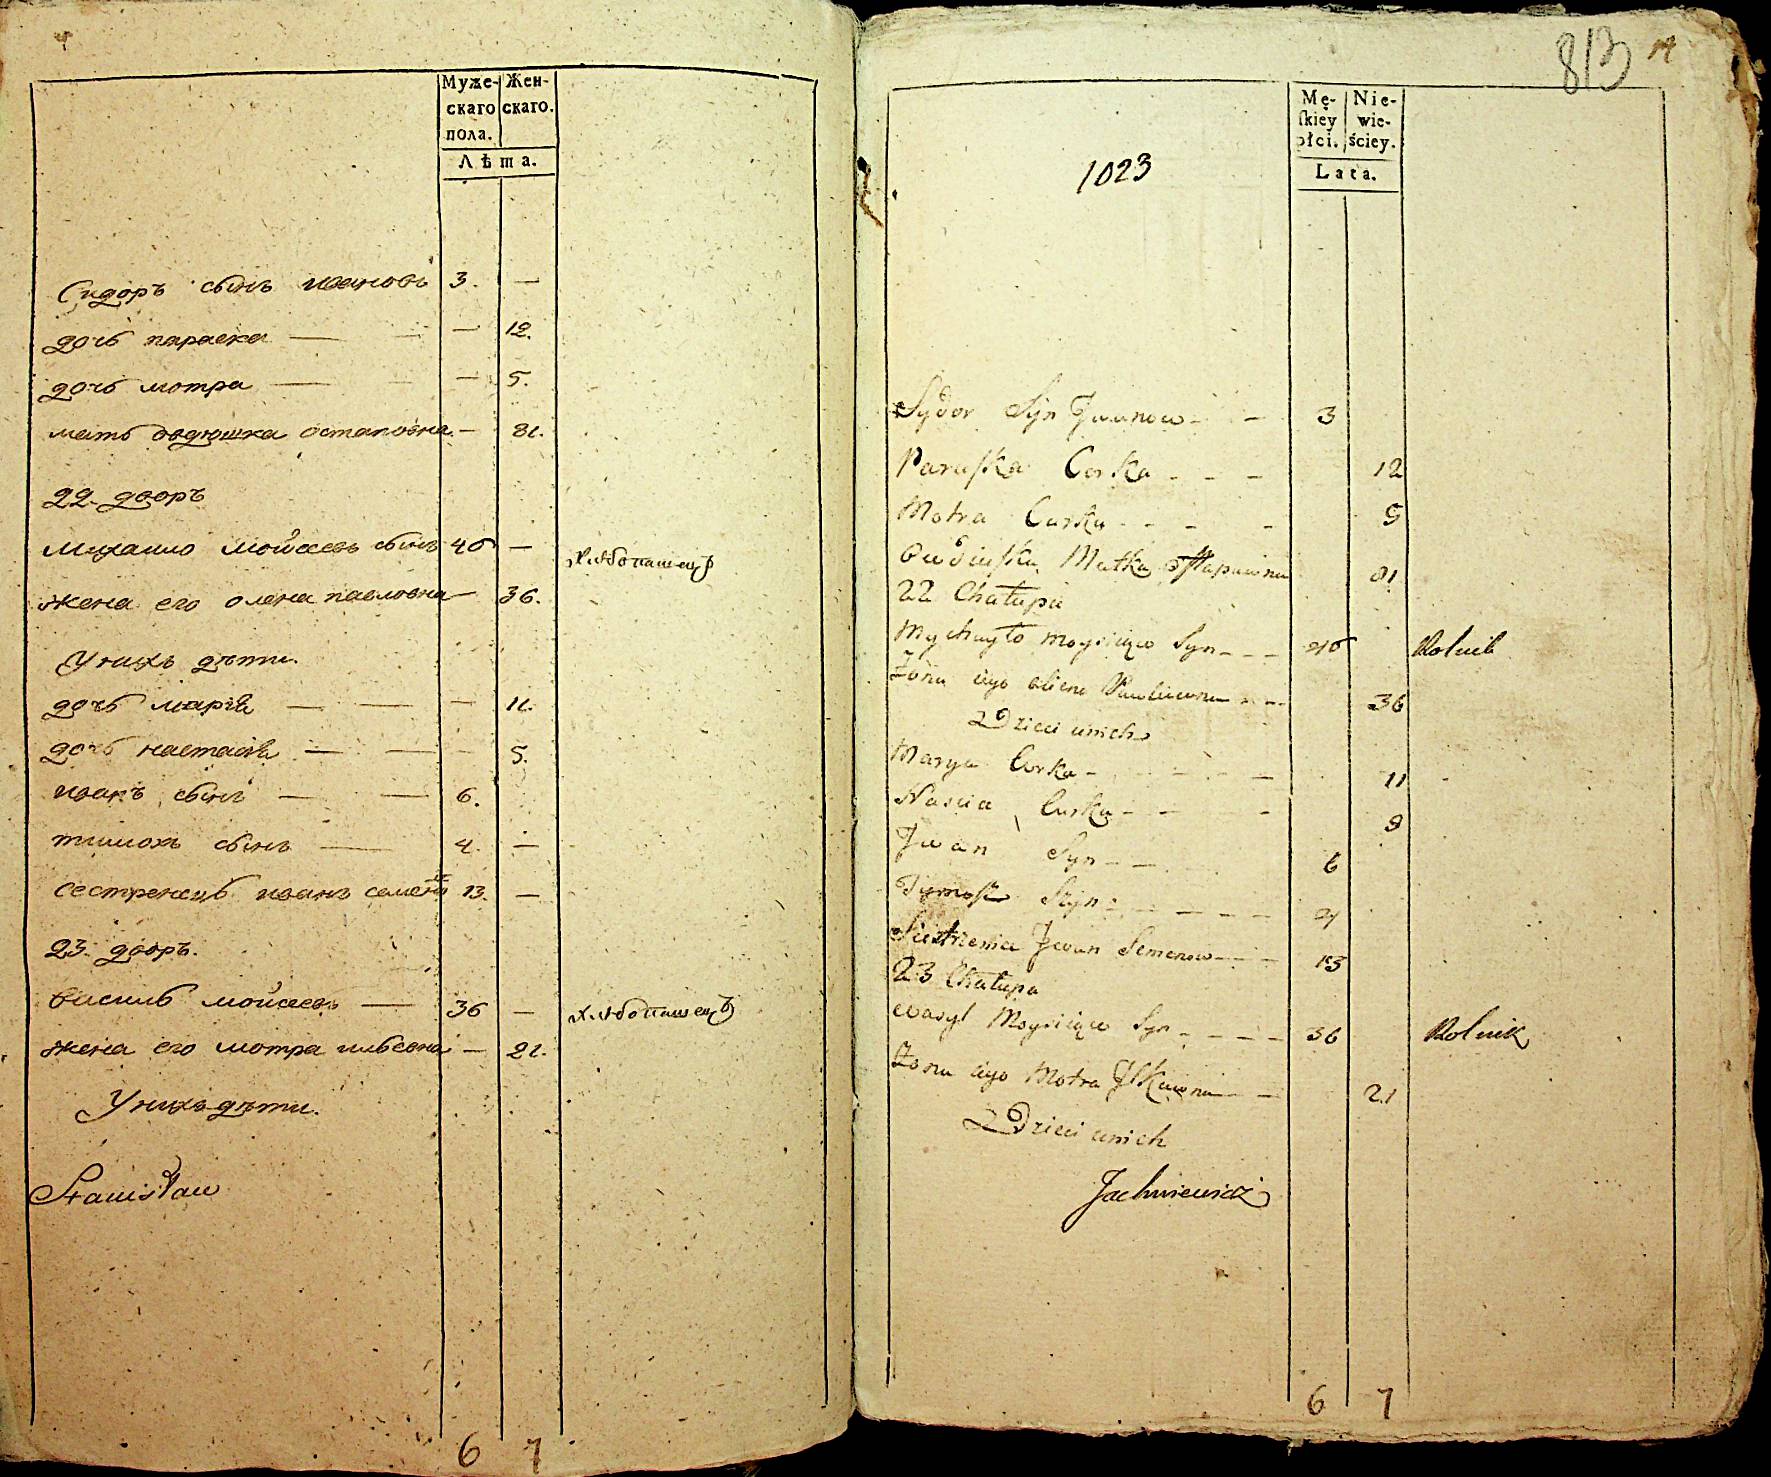 Муже-
скаго
пола.
Жен-
скаго.
Лѣта.
Сидоръ сынъ ивановъ 3. —
дочь параска — — — 12.
дочь мотра — — — 5.
мать овдюшка остаповна — 81.
22. дворъ
михаило мойсеевъ сынъ 46 — хлѣбопашецъ
жена его олена павловна — 36.
У нихъ дѣти.
дочь марія — — — 11.
дочь настасія — — — 5.
иванъ сынъ — — 6.
тимохъ сынъ — 4. —
сестренецъ иванъ семенов 13. —
23. дворъ.
василь мойсеевъ — 36 — хлѣбопашецъ
жена его мотра — 21.
У нихъ дѣти.
Stanisław
6 7
813
1023
Mę-
ſkiey
płci.
Nie-
wie-
ściey.
Lata.
Sydor Syn Jwanow - - 3
Paraſka Corka - - - 12
Motra Curka - - - - 5
Owdiuſka Matka Oſtapowna 81
22 Chałupa
Mychayło Moysiiow Syn - - - 46 Rolnik
Żona iego Oliena Pawliwna - - - 36
Dzieci unich
Marya Curka - - - - - 11
Nascia Curka - - - 9
Jwan Syn - - 6
Tymosz Syn - - - - - 4
Siestrzeniec Jwan Semenow - - - 13
23 Chałupa
Wasyl Moysiiow Syn - - - - 36 Rolnik
Żona iego Motra Jlkowna - - 21
Dzieci unich
Jachniewicz
6 7